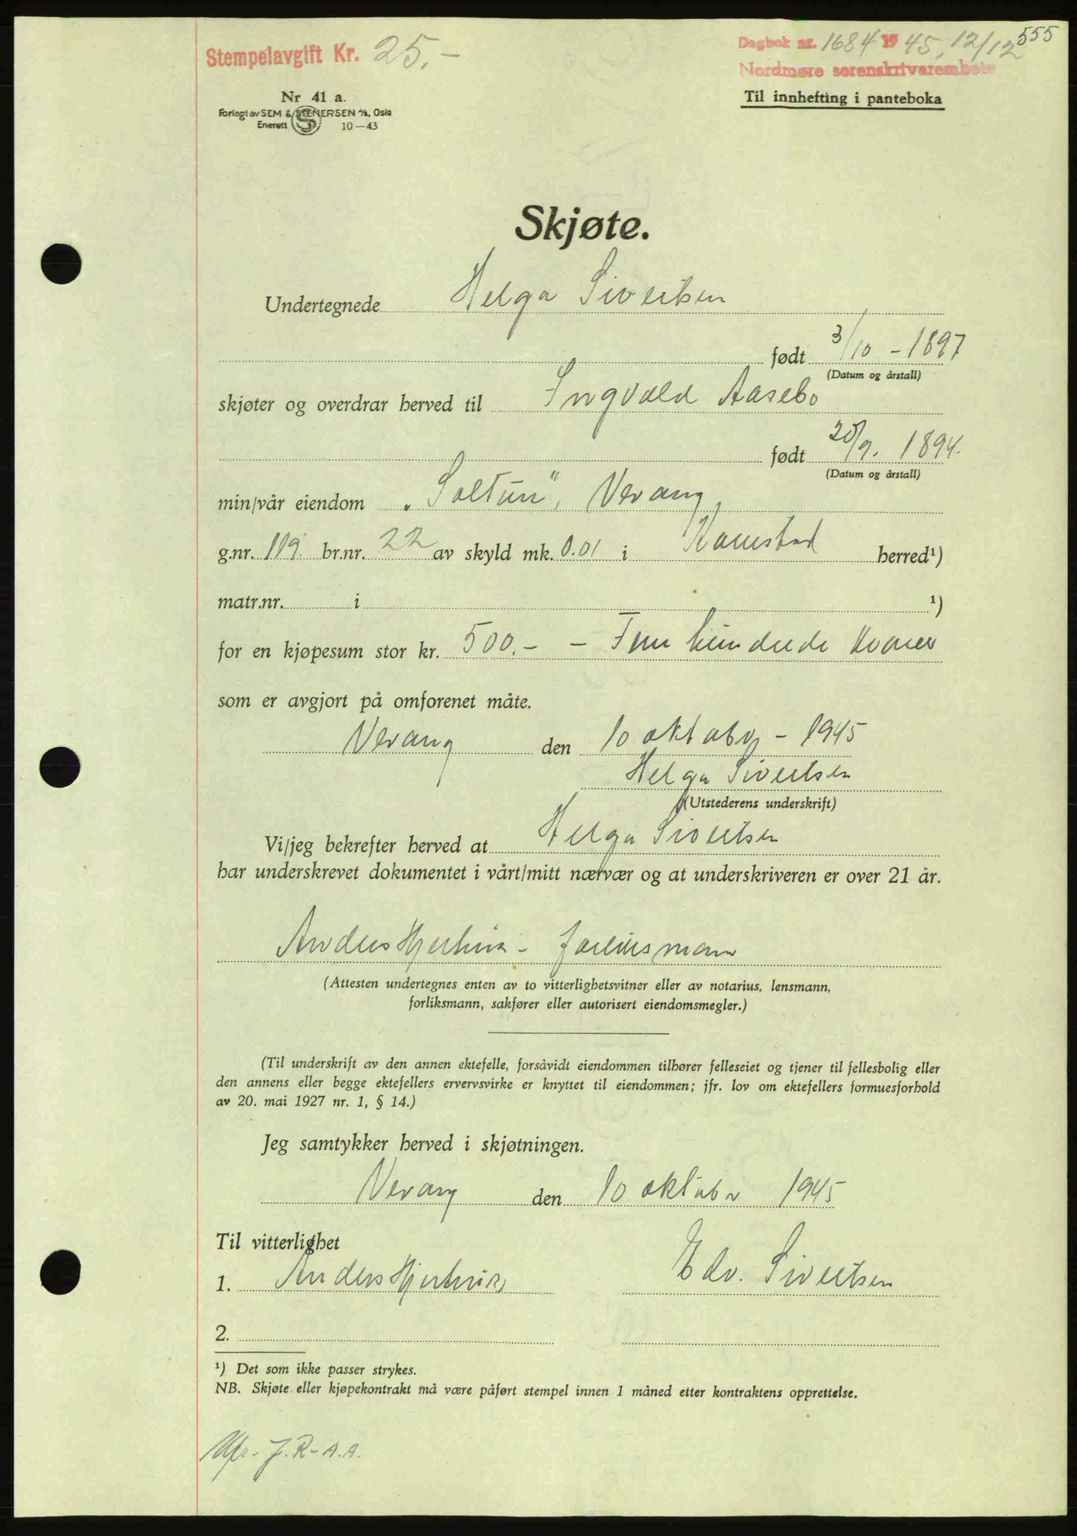 555
Stempelavgift Kr. 25.-
Dagbok nr. 1684 1945, 12/12
Nordmøre sorenskrivarembete
Nr 41 a.
Til innhefting i panteboka
Forlagt av SEM & STENERSEN A/S, Oslo
Enerett 10-43
Skjøte.
Undertegnede Helga Sivertsen
født 3/10 - 1897
(Datum og årstall)
skjøter og overdrar herved til Ingvald Aasebø
født 25/9. 1894.
(Datum og årstall)
min/vår eiendom „Soltun", Vevang,
g.nr. 119. br.nr. 22 av skyld mk. 0.01 i Kornstad herred¹)
matr.nr. i ¹)
for en kjøpesum stor kr. 500.- - Fem hundrede kroner
som er avgjort på omforenet måte.
Vevang den 10 oktober - 1945
Helga Sivertsen
(Utstederens underskrift)
Vi/jeg bekrefter herved at Helga Sivertsen
har underskrevet dokumentet i vårt/mitt nærvær og at underskriveren er over 21 år.
Anders Hjertvik - forliksmann
(Attesten undertegnes enten av to vitterlighetsvitner eller av notarius, lensmann,
forliksmann, sakfører eller autorisert eiendomsmegler.)
(Til underskrift av den annen ektefelle, forsåvidt eiendommen tilhører felleseiet og tjener til fellesbolig eller
den annens eller begge ektefellers ervervsvirke er knyttet til eiendommen; jfr. lov om ektefellers formuesforhold
av 20. mai 1927 nr. 1, § 14.)
Jeg samtykker herved i skjøtningen.
Vevang den 10 oktober 1945
Til vitterlighet
1. Anders Hjertvik Edv. Sivertsen
2.
¹) Det som ikke passer strykes.
NB. Skjøte eller kjøpekontrakt må være påført stempel innen 1 måned etter kontraktens opprettelse.
J.R-A.A.